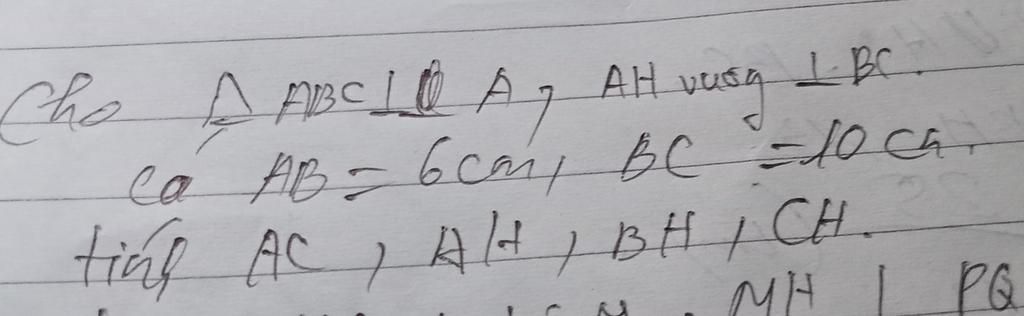 Cho Δ ABC ⊥ A, AH vuông ⊥ BC.
có AB = 6cm, BC = 10cm.
tính AC, AH, BH, CH.
MH ⊥ PQ